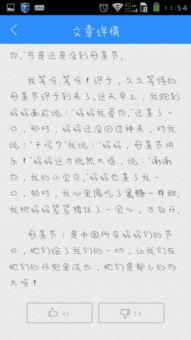 11:34
文章详情
你。”可是还是没到母亲节。
我等呀，等呀！终于，久久等待的
母亲节终于到来了。这天早上，我跑到
妈妈面前说：“妈妈我爱你。”还亲了一
口，那时，妈妈还没回过神来，对我
说：“干吗？”我说：“妈妈，母亲节快
乐！”妈妈这才恍然大悟，说：“谢谢
你，我的小宝贝。”妈妈也亲了我一
口，顿时，我心里像吃了蜜糖一样甜。
我把妈妈紧紧搂住了一会儿，才分开。
母亲节，是中国所有妈妈们的节
日，她们给了我们的一切，让我们在
她们的怀抱里成长，她们是那么的伟
大呀！
45
54